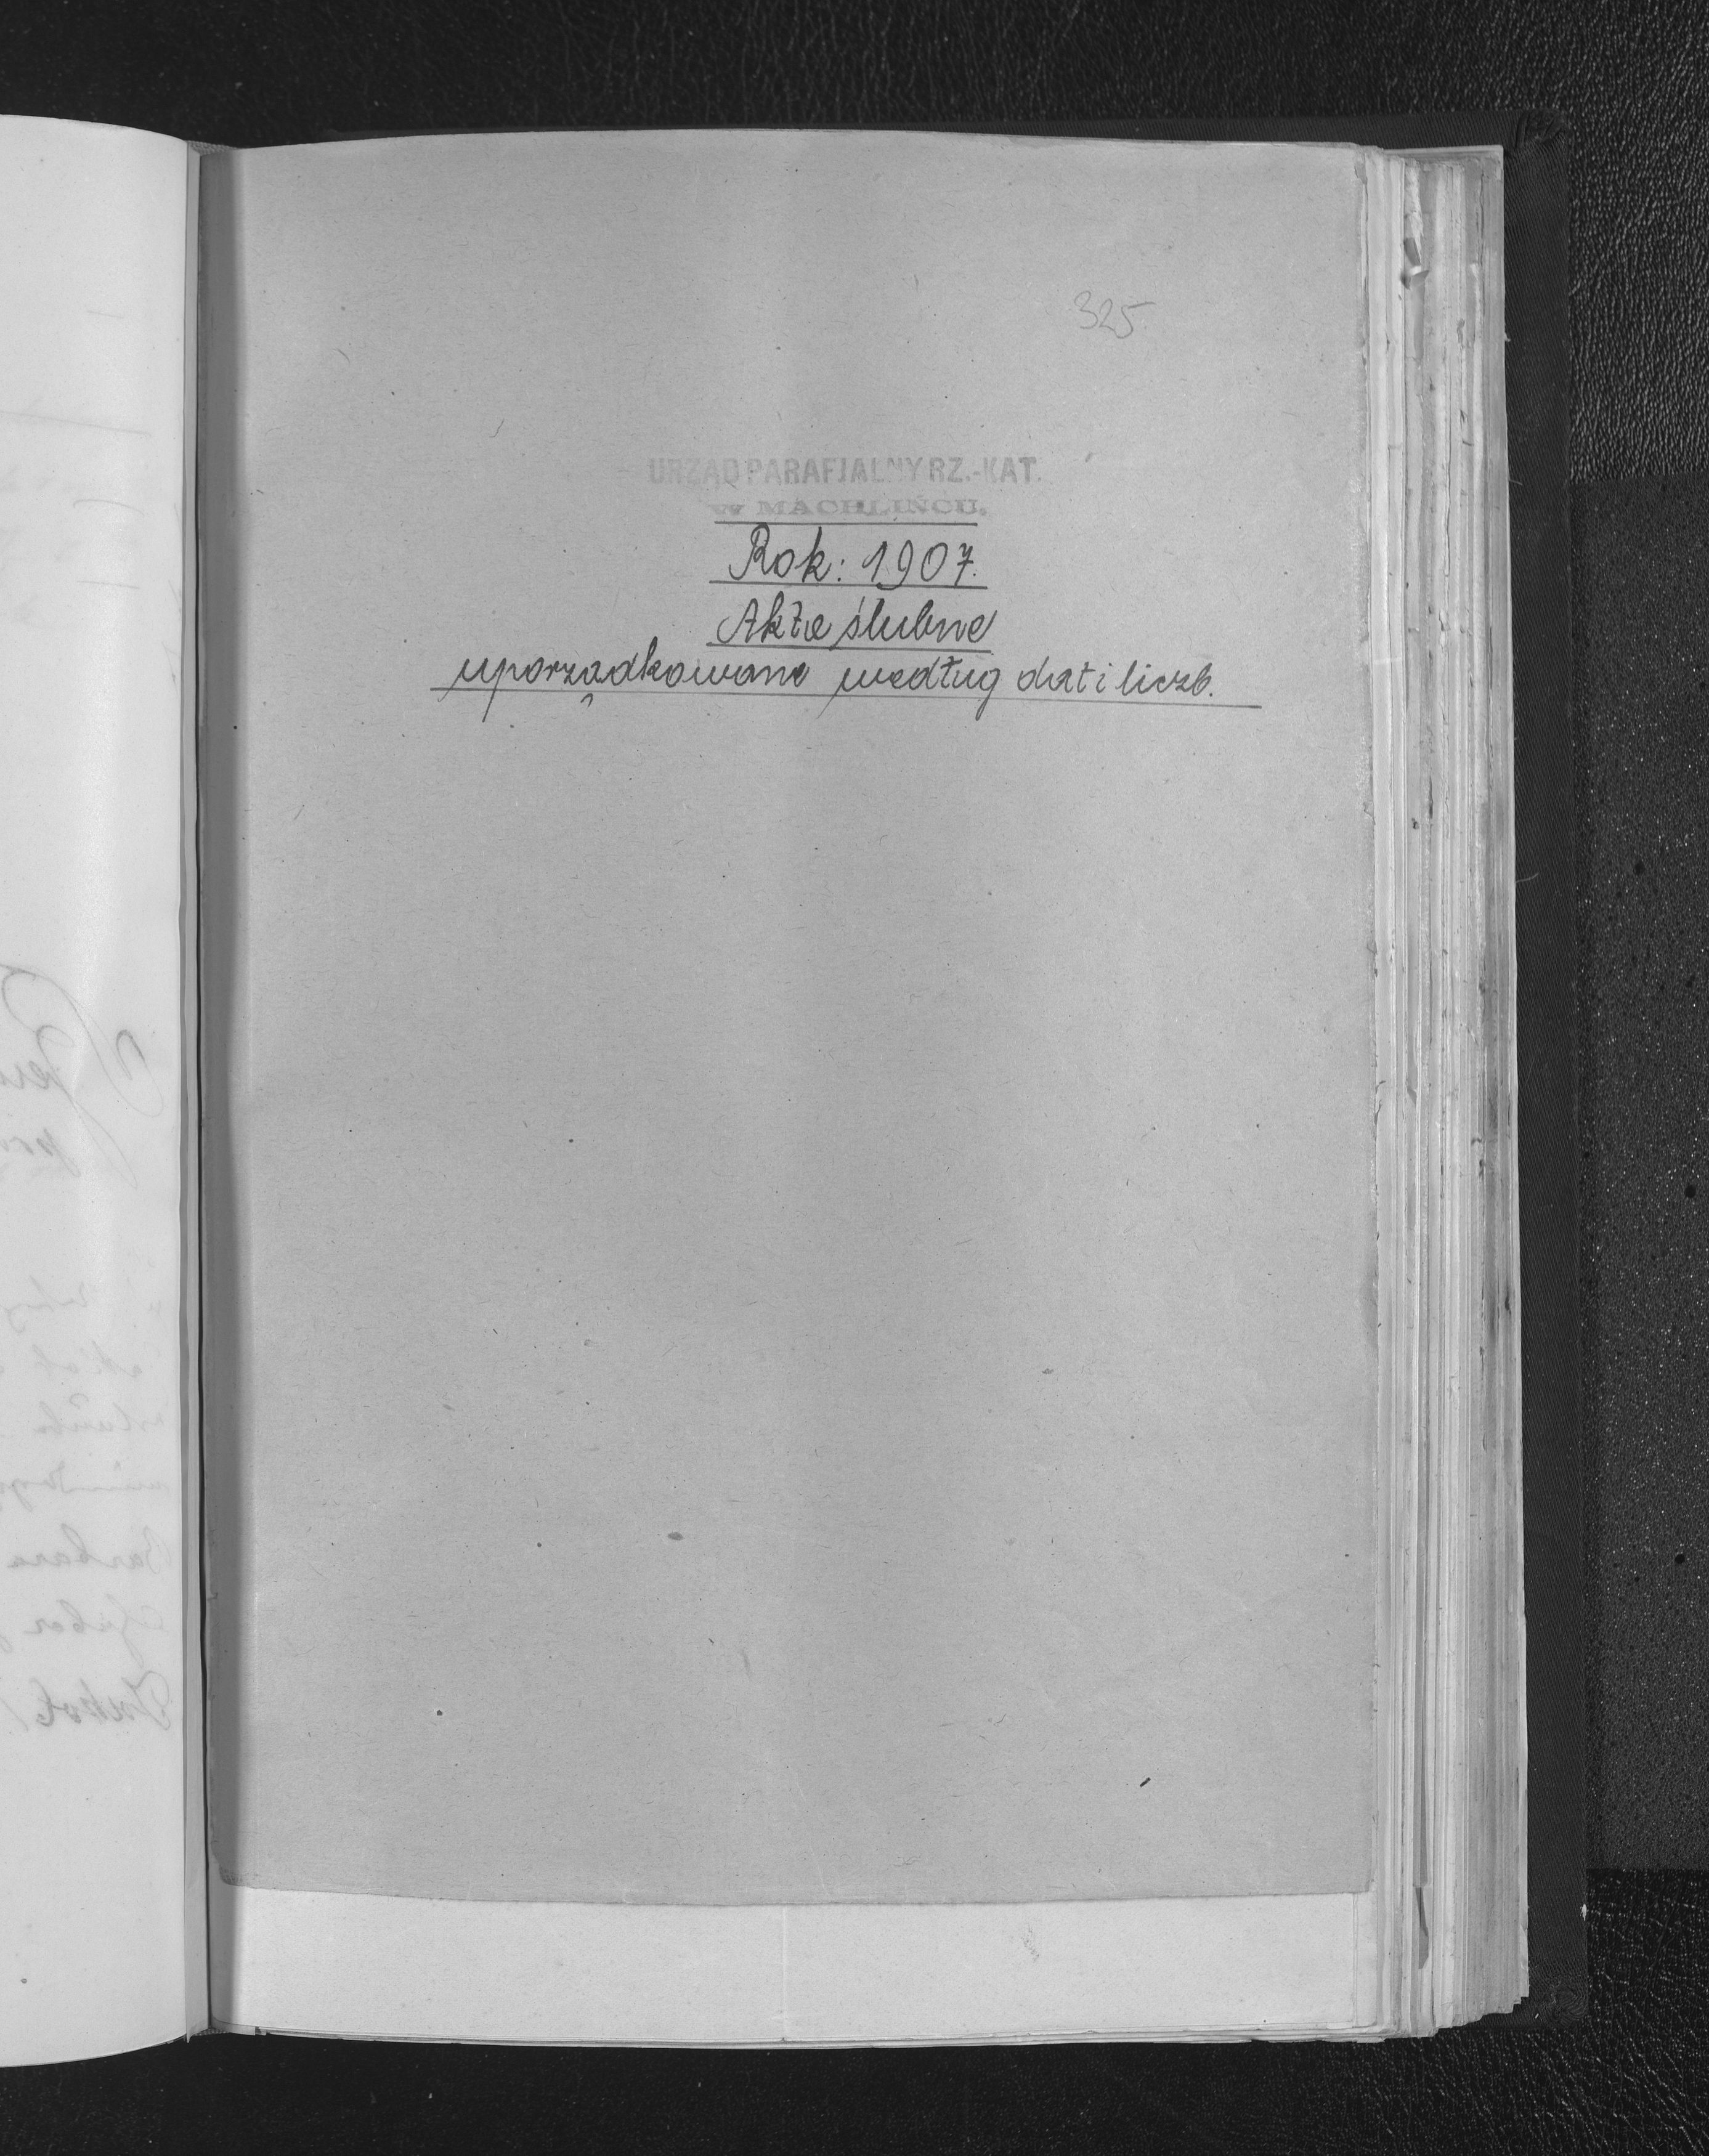 325
URZĄD PARAFJALNY RZ.-KAT.
W MACHLIŃCU.
Rok: 1907.
Akta ślubne
uporządkowane według dat i liczb.